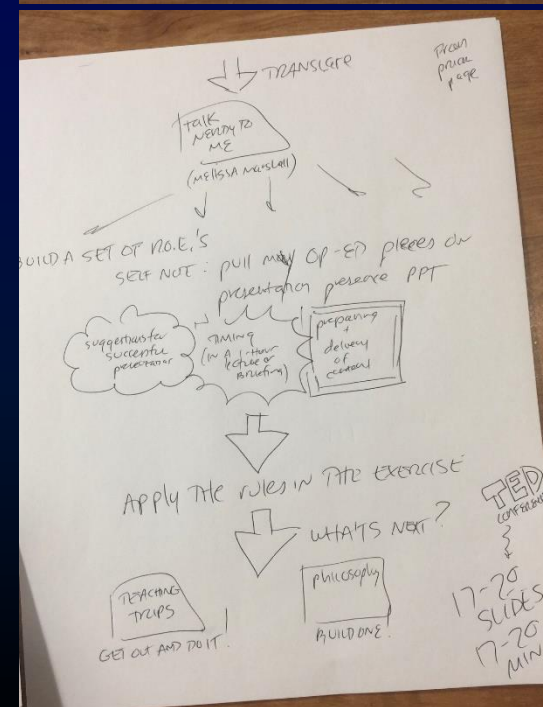 TRANSLATE
talk
NERDY TO
ME
(MELISSA MARSHALL)
BUILD A SET OF R.O.E.'S
SELF NOT: pull my OP-ED pieces on
presentation presence PPT
suggestions for
successful
presentation
TIMING
(IN A 1-HOUR
lecture or
BRIEFING)
preparing
+
delivery
of
content
APPLY THE rules IN THE EXERCISE
WHATS NEXT?
TEACHING
TRIPS
GET OUT AND DO IT!
philosophy
BUILD ONE!
TED
CONFERENCE
17-20
SLIDES
17-20
MIN
page